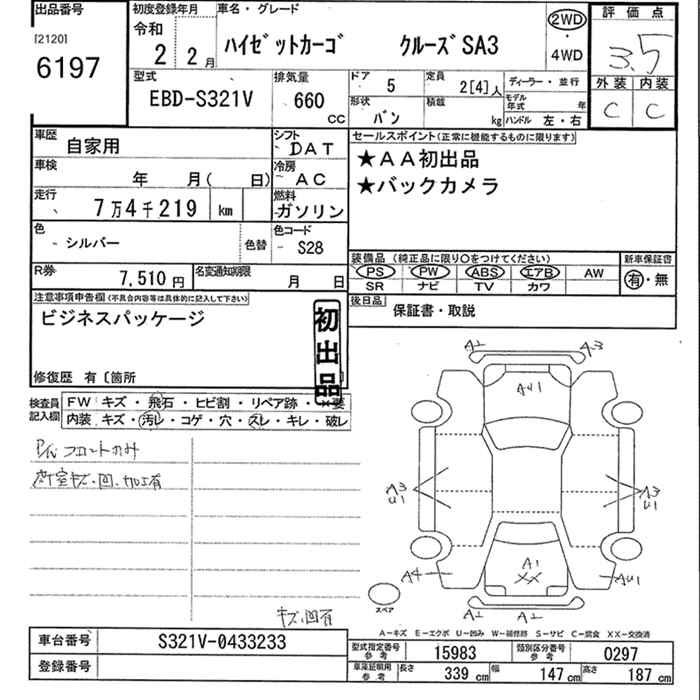 出品番号
[2120]
6197
初度登録年月
令和
2 2月
車名・グレード
ハイゼットカーゴ クルーズSA3
2WD
4WD
評価点
3.5
外装 内装
C C
型式
EBD-S321V
排気量
660
CC
ドア
5
定員
2[4]人
形状
バン
積載
kg
ディーラー・並行
モデル年式 年
ハンドル 左・右
車歴
自家用
シフト
DAT
車検
年 月( 日)
冷房
AC
走行
7万4千219 km
燃料
ガソリン
色
シルバー
色替
色コード
S28
R券
7,510円
名変通知期限
月 日
セールスポイント(正常に機能するものに限ります)
★AA初出品
★バックカメラ
装備品 (純正品に限り○をつけてください)
PS PW ABS エアB AW
SR ナビ TV カワ
新車保証書
有・無
後日品
保証書・取説
注意事項申告欄(不具合内容等は具体的に記入して下さい)
ビジネスパッケージ
初出品
修復歴 有〔箇所
検査員記入欄
FW キズ・飛石・ヒビ割・リペア跡・×要
内装 キズ・汚レ・コゲ・穴・スレ・キレ・破レ
P/W フロントのみ
荷室キズ・凹・サビ有
キズ凹有
A2 A3
AU1
A3
U1
A3
U1
A1
XX
A4
AU1
A2 A2
スペア
A-キズ E-エクボ U-凹み W-補修跡 S-サビ C-腐食 XX-交換済
車台番号
S321V-0433233
登録番号
型式指定番号
参考
15983
類別区分番号
参考
0297
車庫証明用
参考
長さ 339 cm 幅 147 cm 高さ 187 cm